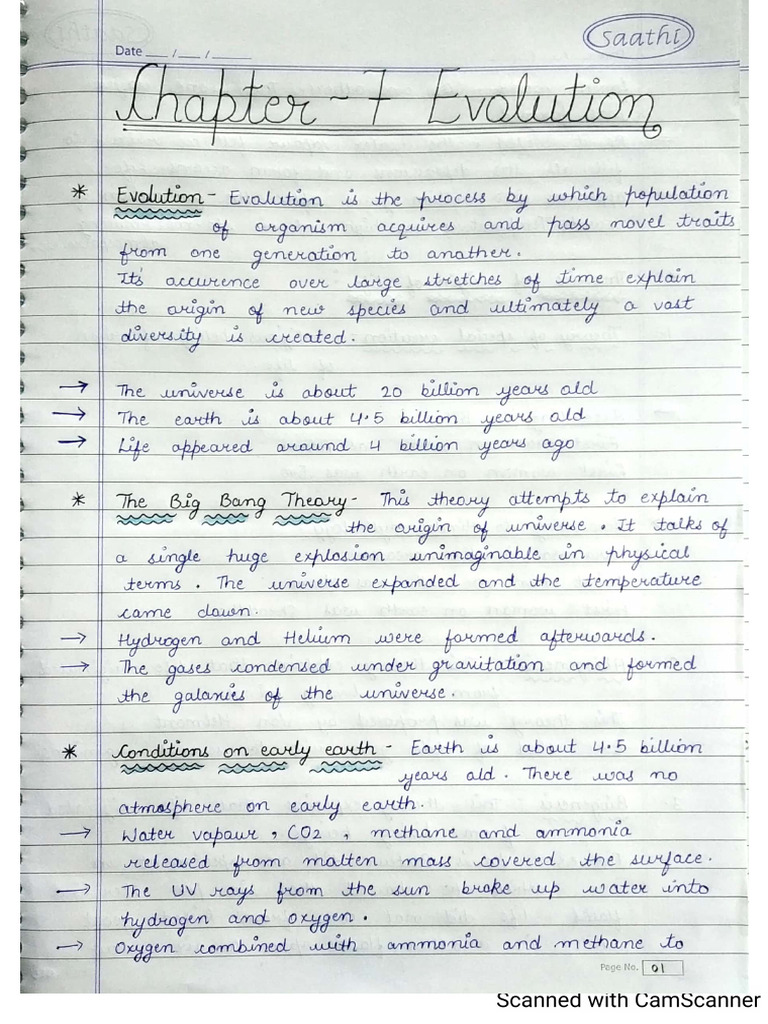 Saathi
Date __/__/____
Chapter-7 Evolution
* Evolution - Evolution is the process by which population
of organism acquires and pass novel traits
from one generation to another.
Its accurence over large stretches of time explain
the origin of new species and ultimately a vast
diversity is created.
→ The universe is about 20 billion years old
→ The earth is about 4.5 billion years old
→ Life appeared around 4 billion years ago
* The Big Bang Theory - This theory attempts to explain
the origin of universe. It talks of
a single huge explosion unimaginable in physical
terms. The universe expanded and the temperature
came down.
→ Hydrogen and Helium were formed afterwards.
→ The gases condensed under gravitation and formed
the galaxies of the universe.
* Conditions on early earth - Earth is about 4.5 billion
years old. There was no
atmosphere on early earth.
→ Water vapour, CO2, methane and ammonia
released from molten mass covered the surface.
→ The UV rays from the sun broke up water into
hydrogen and oxygen.
→ Oxygen combined with ammonia and methane to
Page No. 01
Scanned with CamScanner